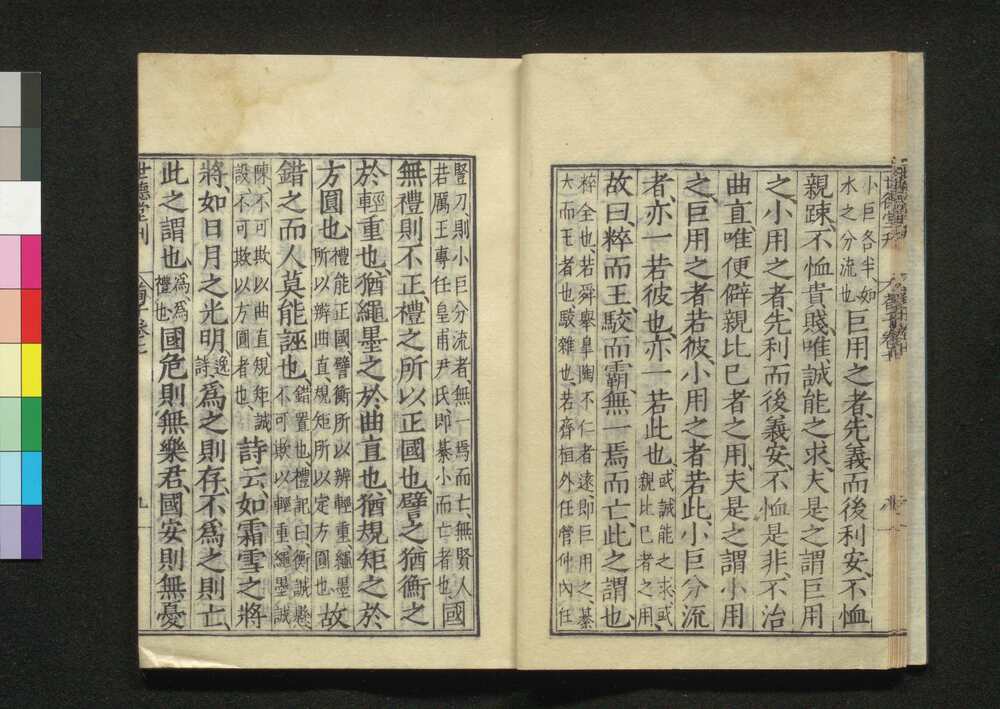 小巨各半、如水之分流也、巨用之者、先義而後利安、不恤
親疎、不恤貴賤、唯誠能之求、夫是之謂巨用
之、小用之者、先利而後義安、不恤是非、不治
曲直、唯便僻親比已者之用、夫是之謂小用
之、巨用之者若彼、小用之者若此、小巨分流
者、亦一若彼也、亦一若此也、或誠能之求、或親比已者之用、
故曰、粹而王、駮而霸、無一焉而亡、此之謂也、
粹全也、若舜舉皐陶不仁者遠、即巨用之、綦
大而王者也、駮雜也、若齊桓外任管仲內任
豎刀、則小巨分流者、無一焉而亡、無賢人若厲王專任皇甫尹氏、即綦小而亡者也、國
無禮則不正、禮之所以正國也、譬之猶衡之
於輕重也、猶繩墨之於曲直也、猶規矩之於
方圓也、禮能正國、譬衡所以辨輕重、繩墨所以辨曲直、規矩所以定方圓也、故
錯之而人莫能誣也、錯置也、禮記曰、衡誠懸不可欺以輕重、繩墨誠
陳、不可欺以曲直、規矩誠設、不可欺以方圓者也、詩云、如霜雪之將
將、如日月之光明、逸詩、爲之則存、不爲之則亡、
此之謂也、爲爲禮也、國危則無樂君、國安則無憂
世德堂刊
九